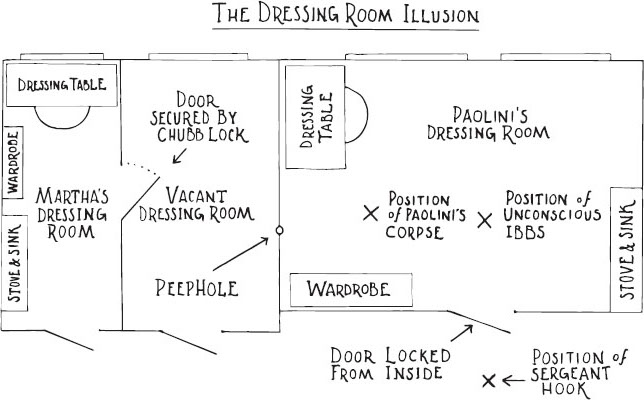 THE DRESSING ROOM ILLUSION
DRESSING TABLE
WARDROBE
MARTHA'S
DRESSING
ROOM
STOVE & SINK
DOOR
SECURED BY
CHUBB LOCK
VACANT
DRESSING ROOM
PEEPHOLE
DRESSING
TABLE
PAOLINI'S
DRESSING ROOM
POSITION
of PAOLINI'S
CORPSE
POSITION of
UNCONSCIOUS
IBBS
STOVE & SINK
WARDROBE
DOOR LOCKED
FROM INSIDE
POSITION of
SERGEANT
HOOK